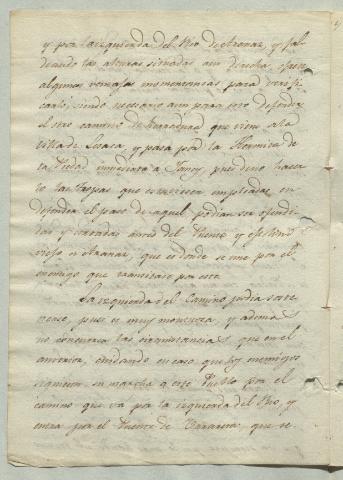 y por la izquierda del Rio de Aranaz, y fal
deando las alturas situadas a su derecha,
algunas ventajas momentaneas para verifi
carlo, siendo necesario aun para esto defender
el otro camino de que viene a la
de Lesaca, y pasa por la Hermita de
la Piedad inmediata a Yanci, pues de no hacer
lo las tropas que estuviesen impleadas en
defender el paso de aquel podian ser ofendi
das y cortadas antes del Puente y
viejo de Aranaz, que es donde se une por el
enemigo que transitase por este.
La izquierda del Camino podia soste
nerse, pues es muy montuosa, y ademas
no concurren las circunstancias que en el
anterior, cuidando en caso que los enemigos
siguiesen su marcha a este Pueblo por el
camino que va por la izquierda del Rio, y
entra por el Puente de que se